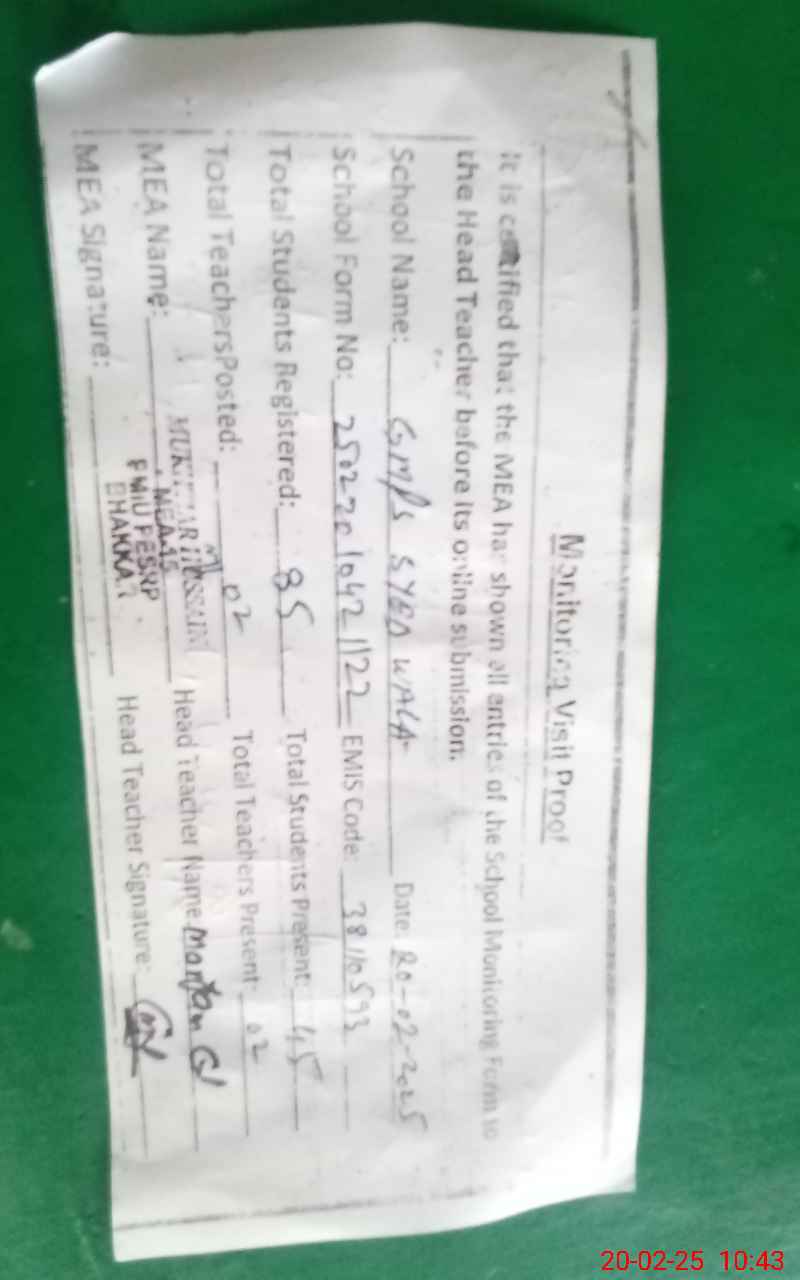 Monitoring Visit Proof
It is certified that the MEA has shown all entries of the School Monitoring Form to
the Head Teacher before its online submission.
School Name: GMPS SYED WALA Date: 20-02-2025
School Form No: 25022010421122 EMIS Code: 38110593
Total Students Registered: 85 Total Students Present: 45
Total Teachers Posted: 02 Total Teachers Present: 02
MEA Name: MUKHTAR HUSSAIN Head Teacher Name:
MEA 15
PMIU PESRP
BHAKKAR
MEA Signature: Head Teacher Signature:
20-02-25 10:43